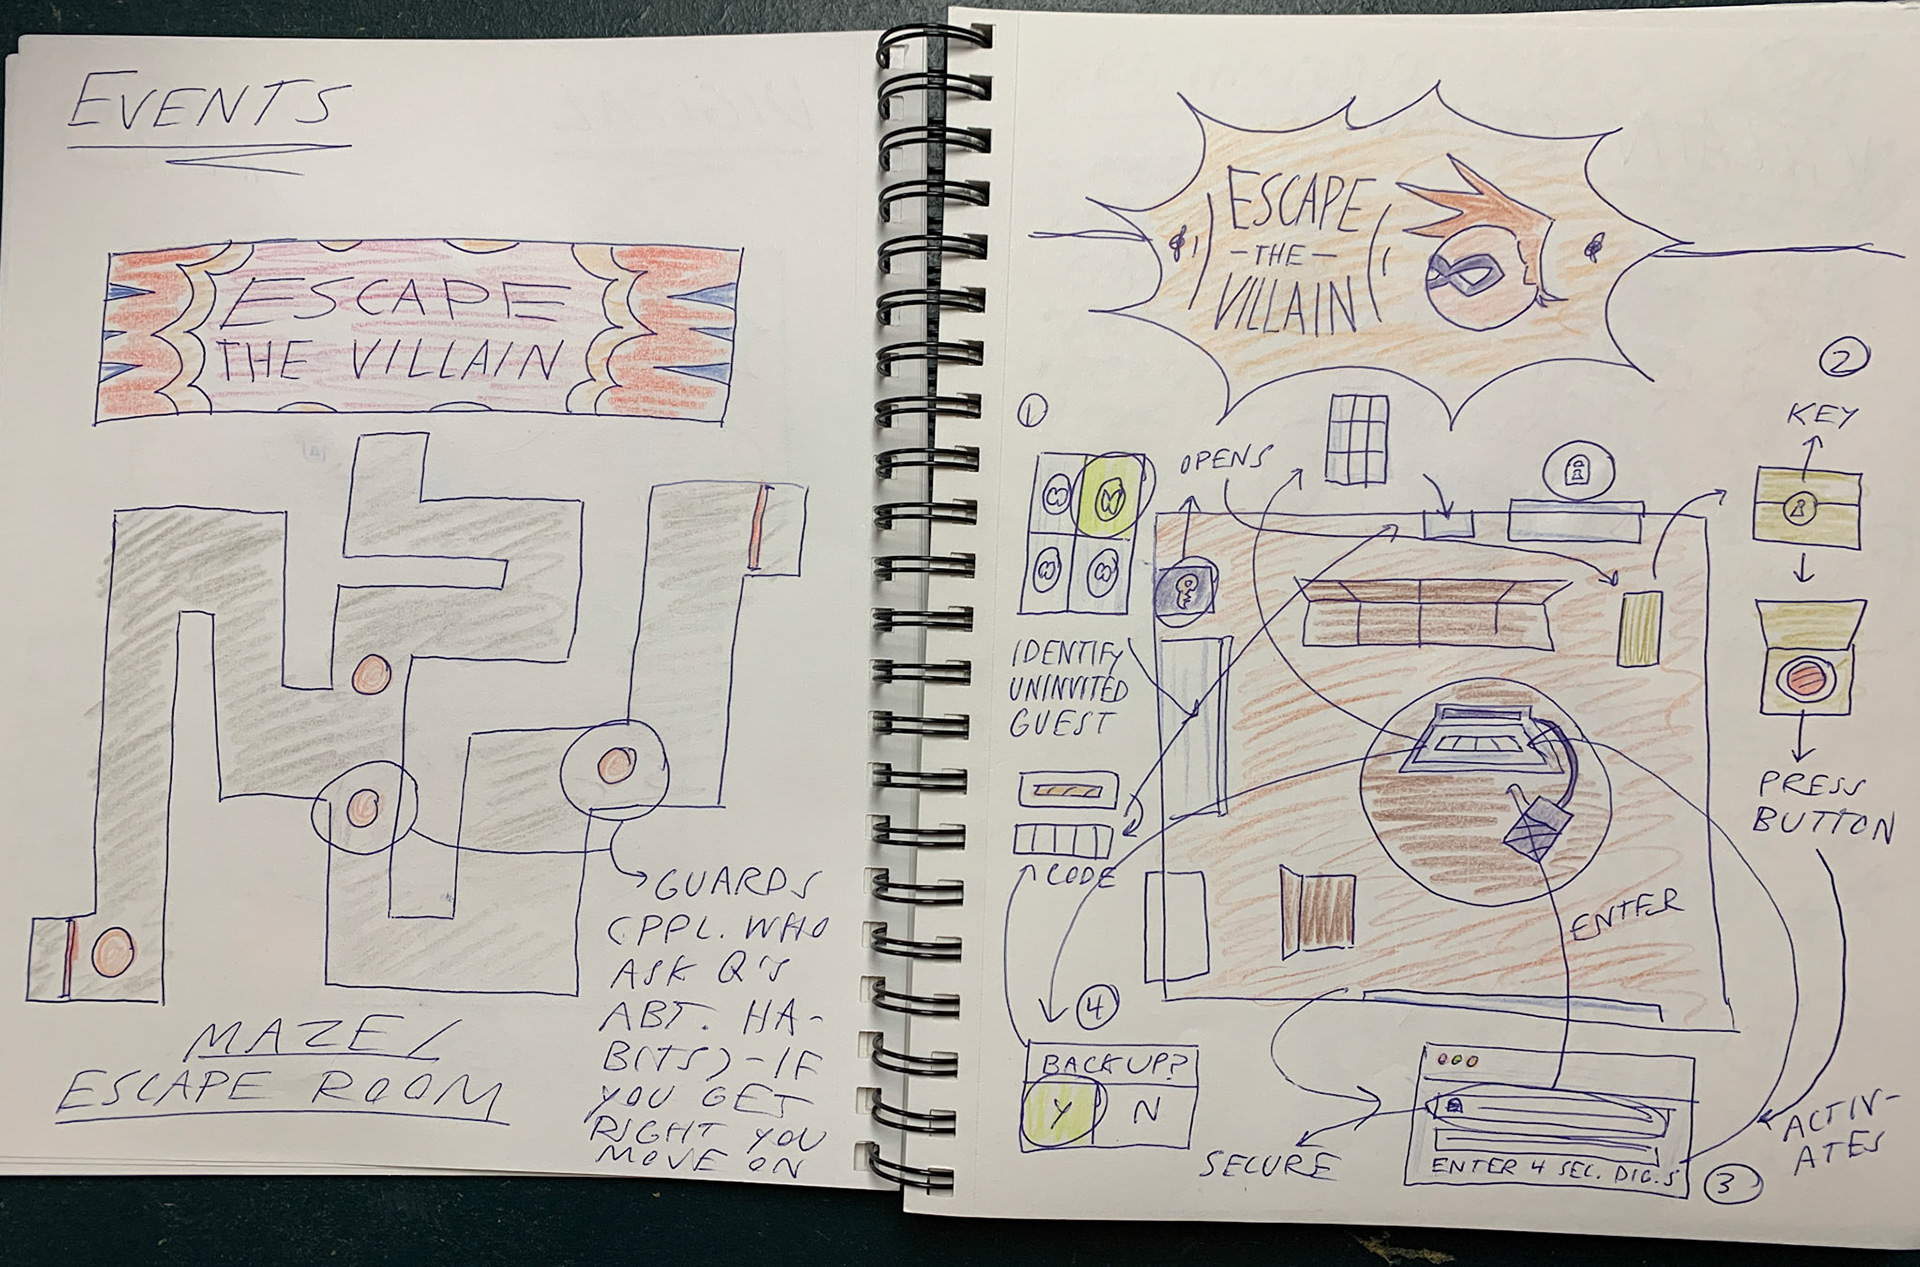 EVENTS
ESCAPE
THE VILLAIN
GUARDS
(PPL. WHO
ASK Q'S
ABT. HA-
BITS) - IF
YOU GET
RIGHT YOU
MOVE ON
MAZE/
ESCAPE ROOM
ESCAPE
- THE -
VILLAIN
1
OPENS
IDENTIFY
UNINVITED
GUEST
CODE
2
KEY
PRESS
BUTTON
ENTER
4
BACKUP?
Y N
SECURE
ENTER 4 SEC. DIG.S
3
ACTIV-
ATES